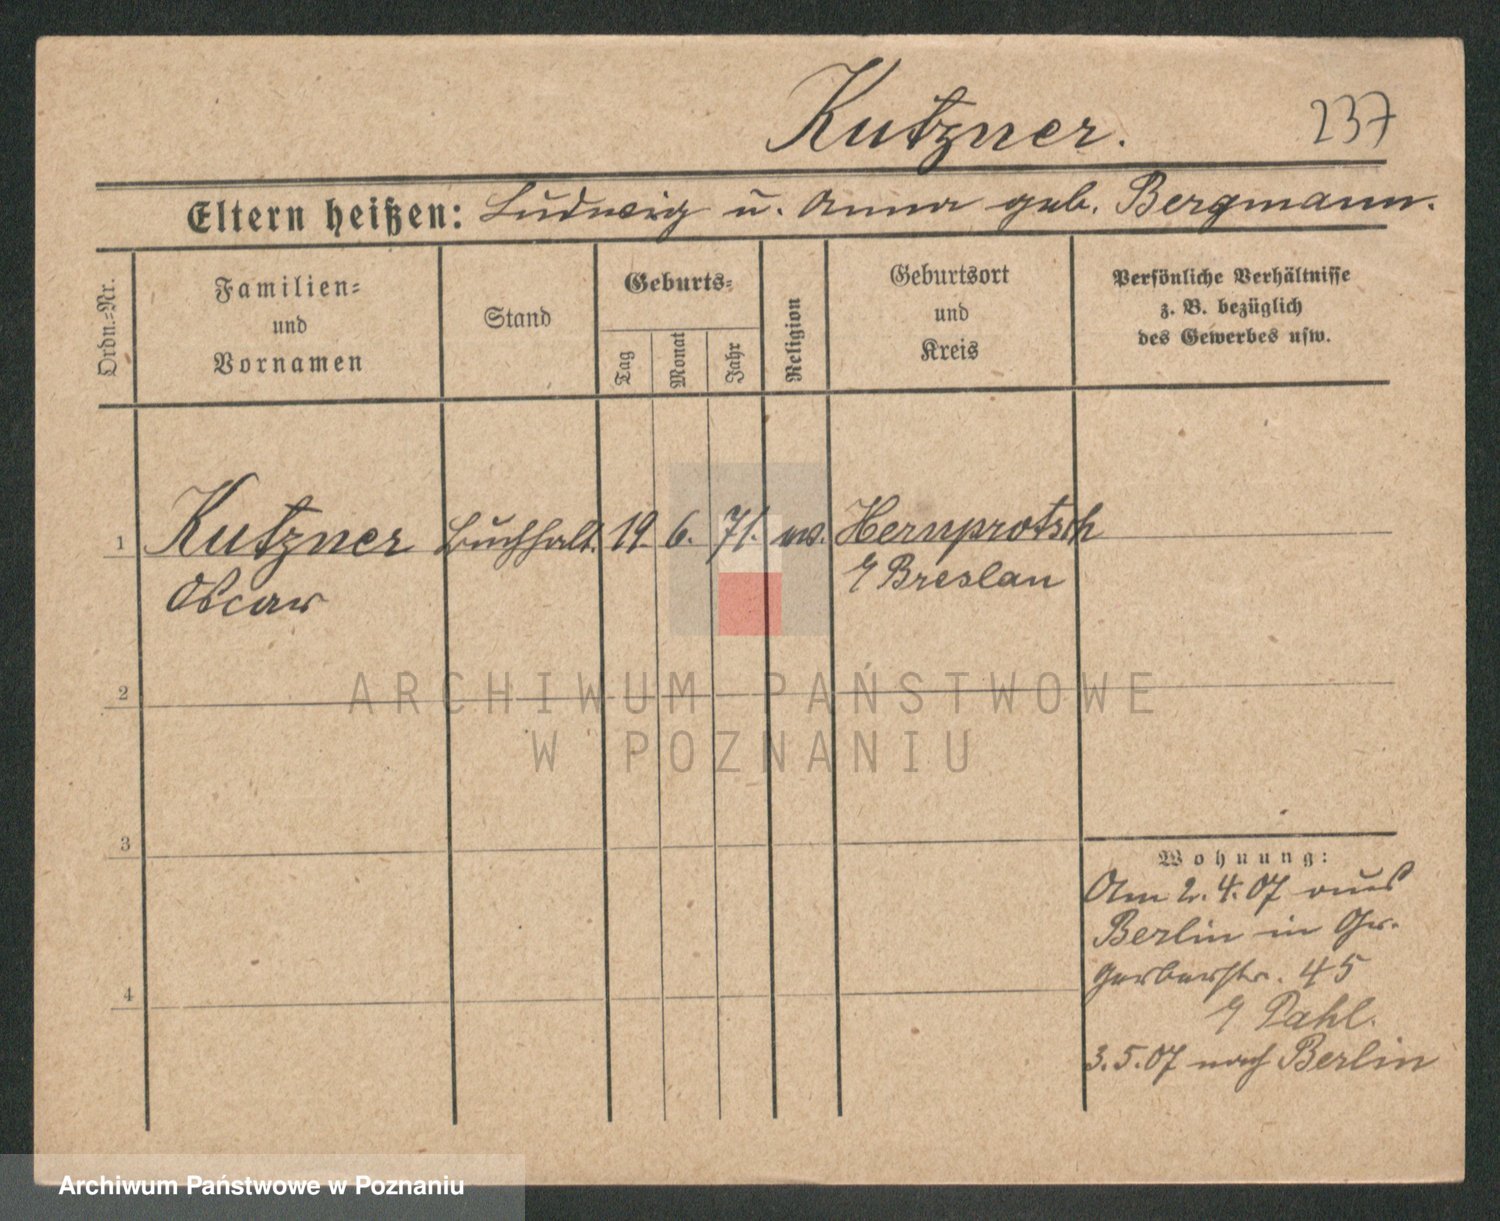 Kutzner.
237
Eltern heißen: Ludwig u. Anna geb. Bergmann.
Ordn.=Nr.
Familien=
und
Vornamen
Stand
Geburts=
Tag
Monat
Jahr
Religion
Geburtsort
und
Kreis
Persönliche Verhältnisse
z. B. bezüglich
des Gewerbes usw.
1 Kutzner Buchhalt. 19. 6. 71. Hernprotsch
Oscar
Breslau
2
ARCHIWUM PAŃSTWOWE
W POZNANIU
3
Wohnung:
Am 2.4.07 aus
Berlin in Gr.
Gerberstr. 45
Pahl.
3.5.07 nach Berlin
4
Archiwum Państwowe w Poznaniu